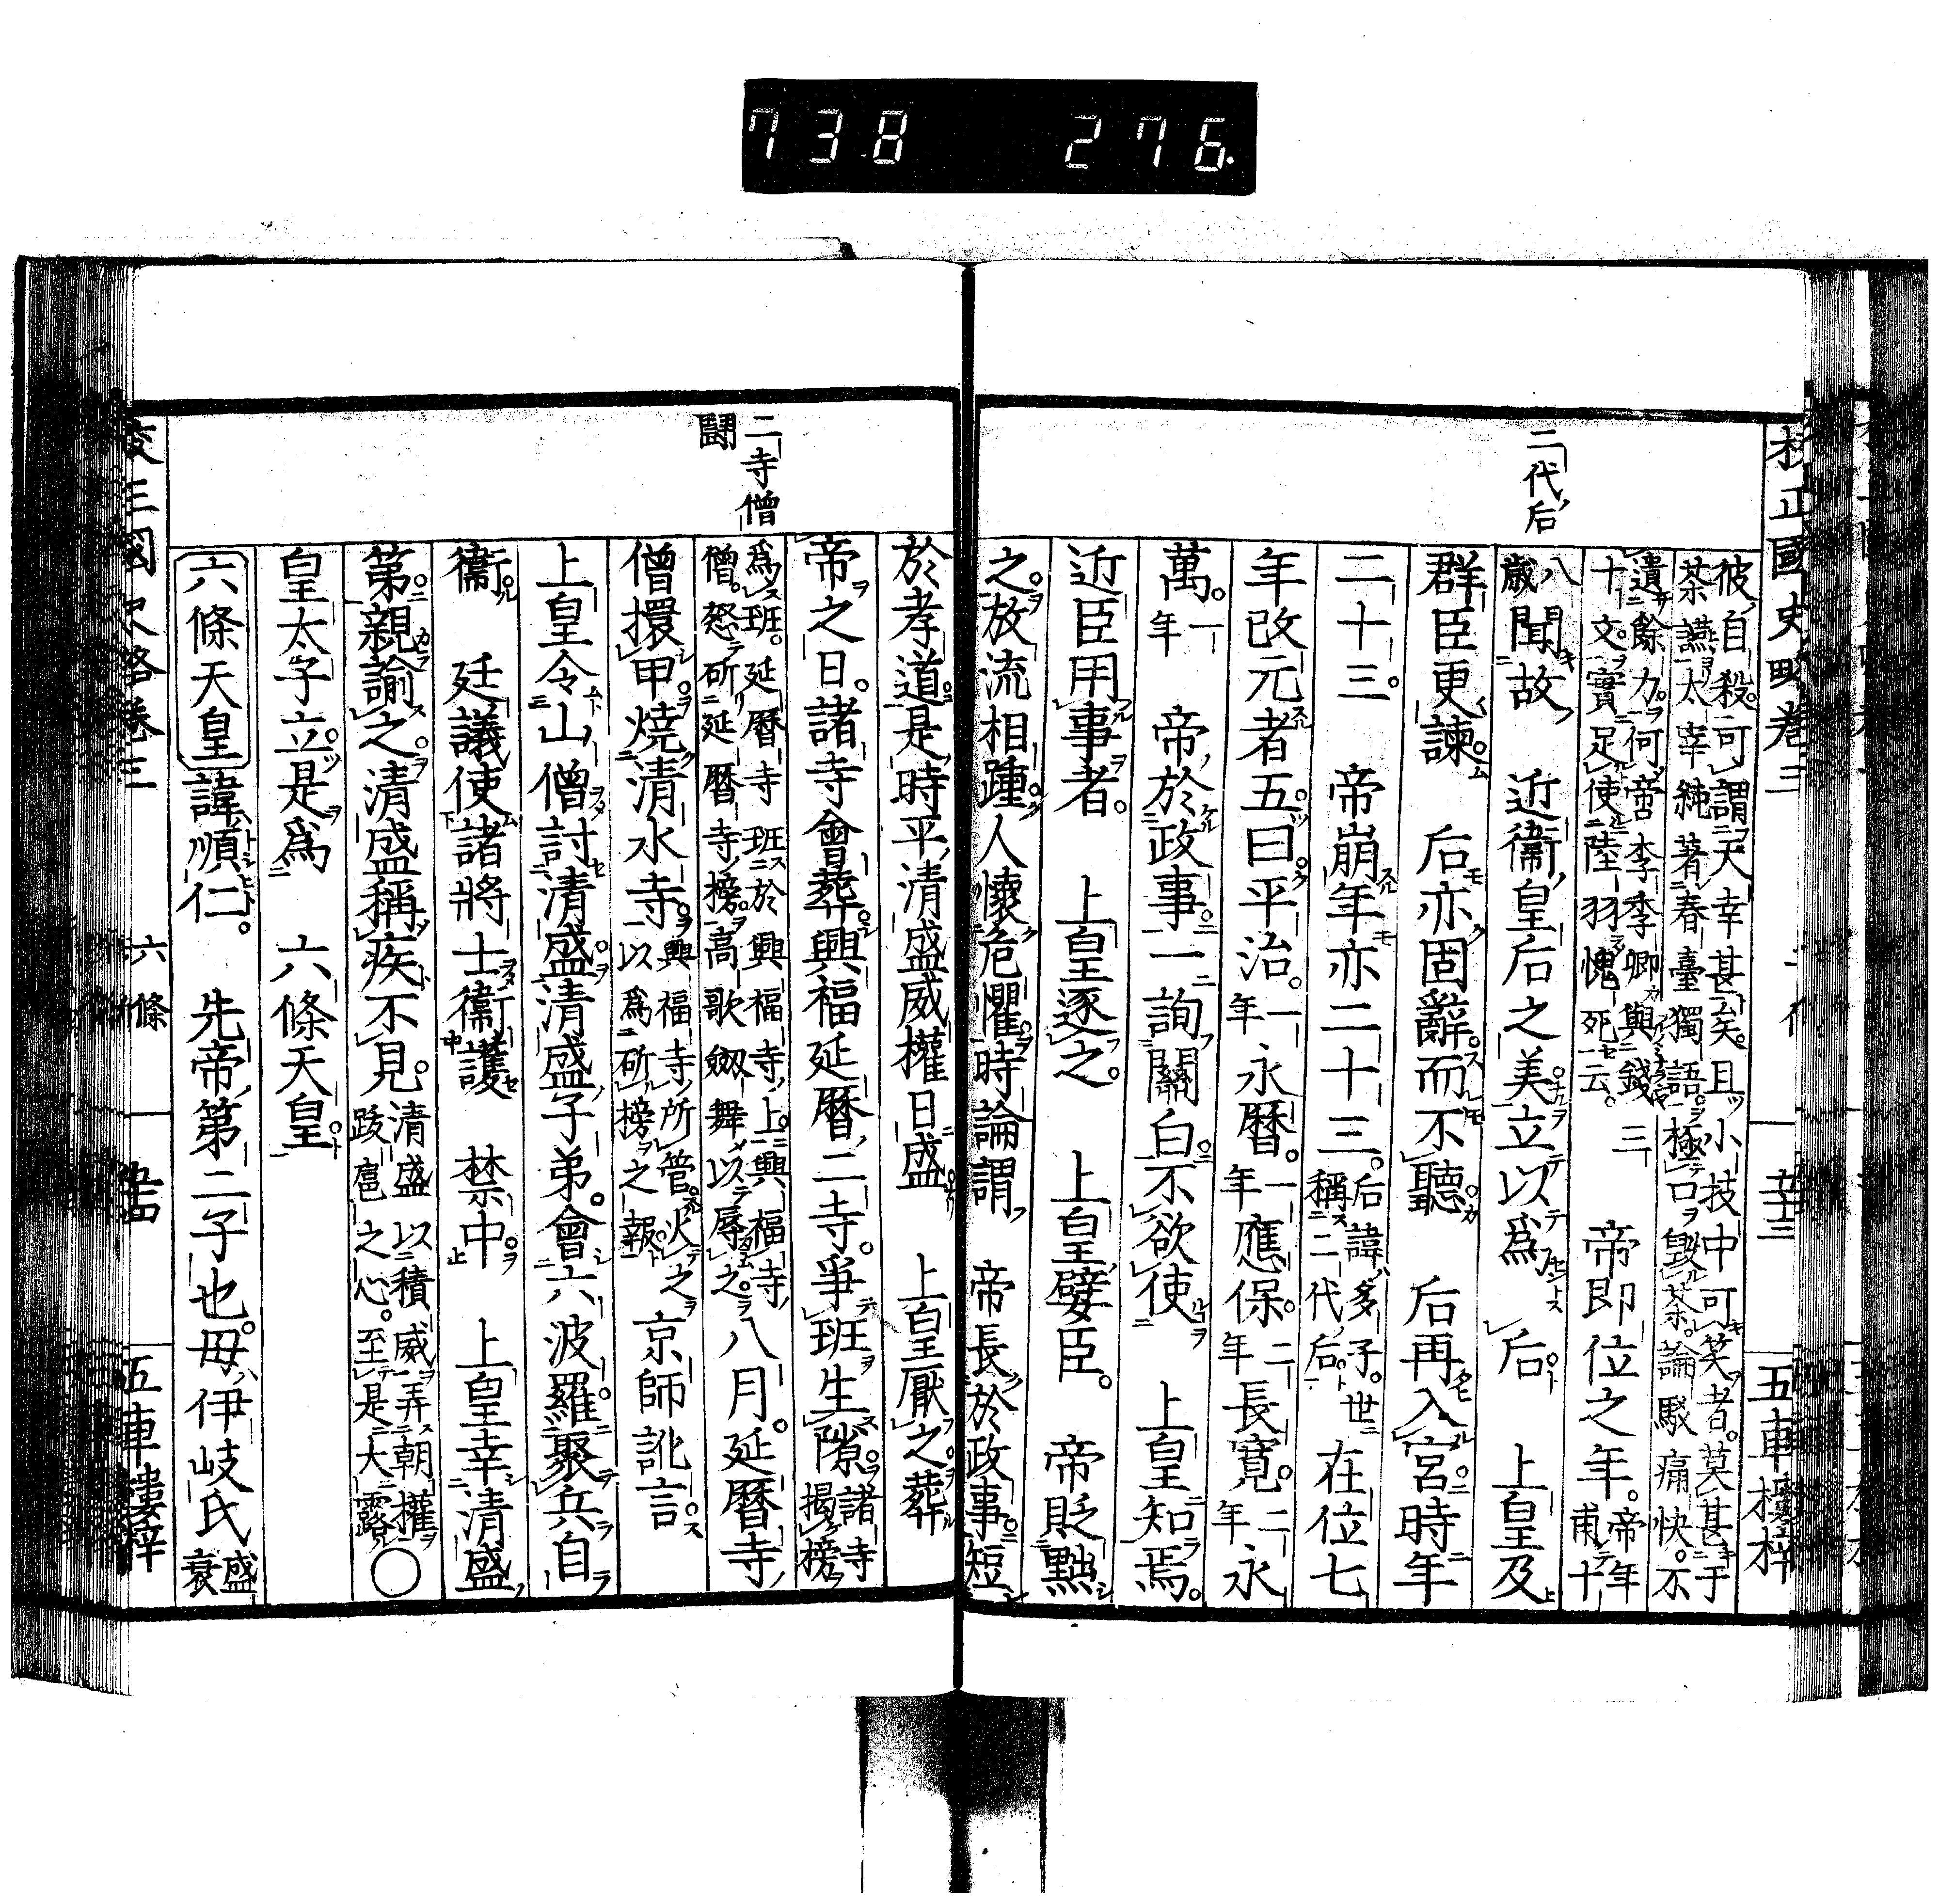 738 276.
校正國史畧卷三
二代ノ后
彼自殺可謂天幸甚矣且小技中可笑者莫甚于
茶讌太宰純著春臺獨語極口毀茶論駁痛快不
遺餘力何啻李季卿與錢
十文實足使陸羽愧死云
三 帝即位之年帝年甫十
八歲聞故 近衞皇后之美立以爲后 上皇及
群臣更諫 后亦固辭而不聽 后再入宮時年
二十三 帝崩年亦二十三后諱多子世稱二代后在位七
年改元者五曰平治一年永曆一年應保二年長寬二年永
萬一年 帝於政事一詢關白不欲使 上皇知焉
近臣用事者 上皇逐之 上皇嬖臣 帝貶黜
之放流相踵人懷危懼時論謂 帝長於政事短
二寺僧鬪
於孝道是時平清盛威權日盛 上皇厭之葬
帝之日諸寺會葬興福延曆二寺爭班生隙諸寺揭榜
爲班延曆寺班於興福寺上興福寺
僧怒斫延曆寺榜高歌劔舞以辱之八月延曆寺
僧擐甲燒清水寺興福寺所管火之以爲斫榜之報京師訛言
上皇令山僧討清盛清盛子弟會六波羅聚兵自
衞 廷議使諸將士衞護 禁中 上皇幸清盛
第親諭之清盛稱疾不見清盛以積威弄朝權跋扈之心至是大露〇
皇太子立是爲 六條天皇
六條天皇諱順仁 先帝第二子也母伊岐氏盛衰
六條
五車樓梓